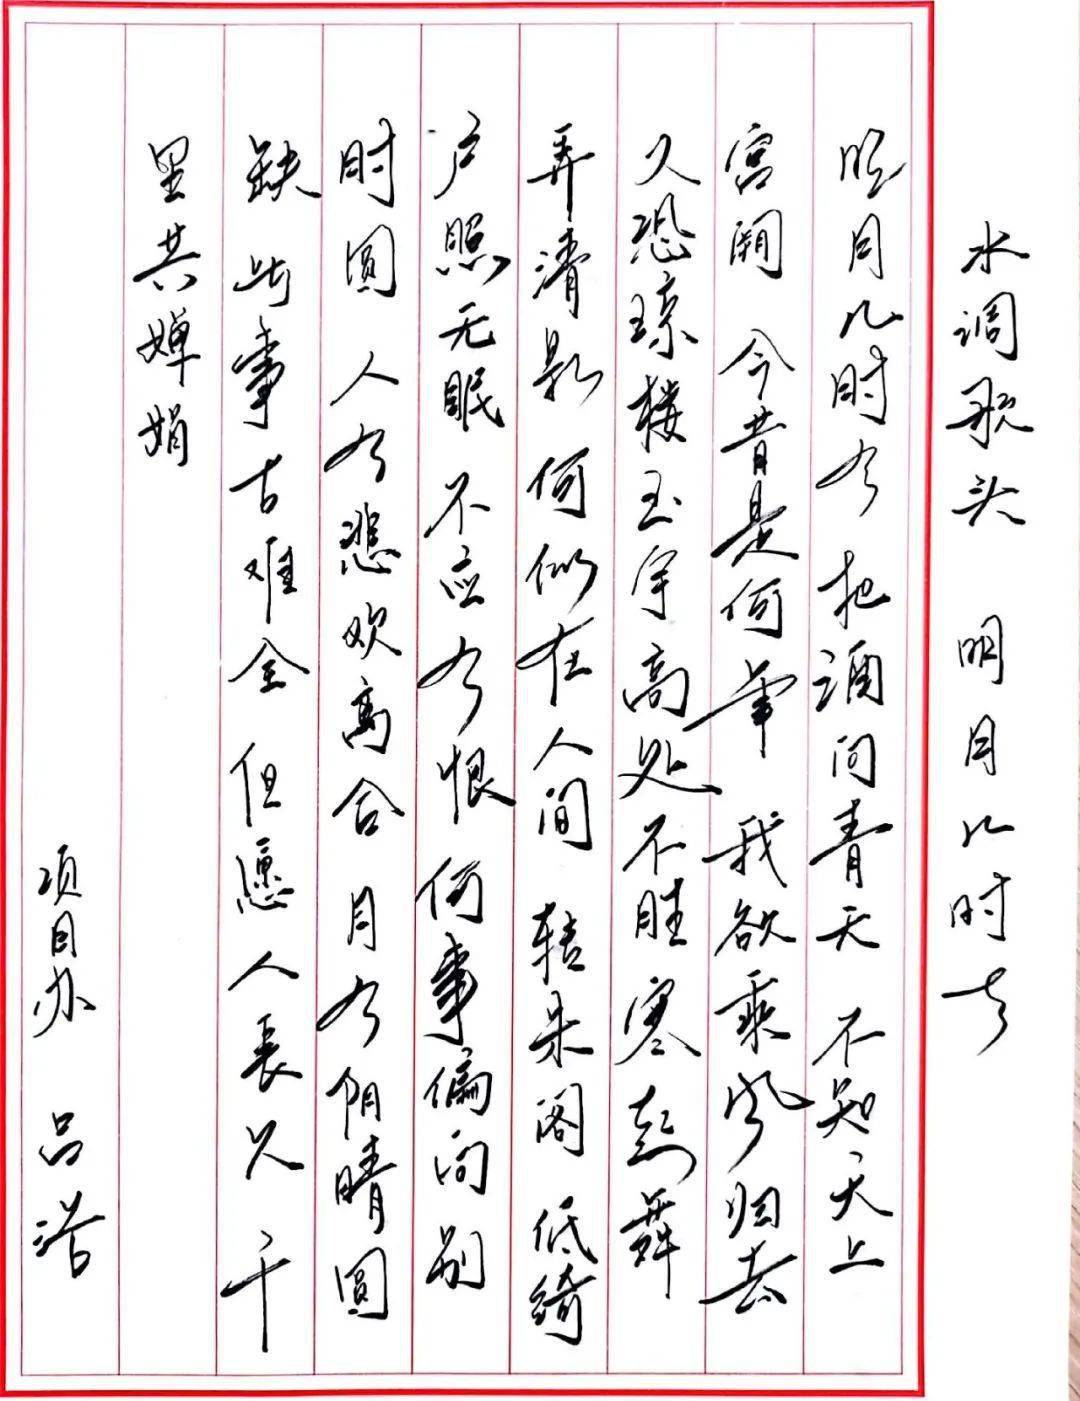 水调歌头 明月几时有
明月几时有 把酒问青天 不知天上
宫阙 今昔是何年 我欲乘风归去
又恐琼楼玉宇高处不胜寒起舞
弄清影 何似在人间 转朱阁 低绮
户照无眠 不应有恨 何事偏向别
时圆 人有悲欢离合 月有阴晴圆
缺 此事古难全 但愿人长久 千
里共婵娟
项目办 吕